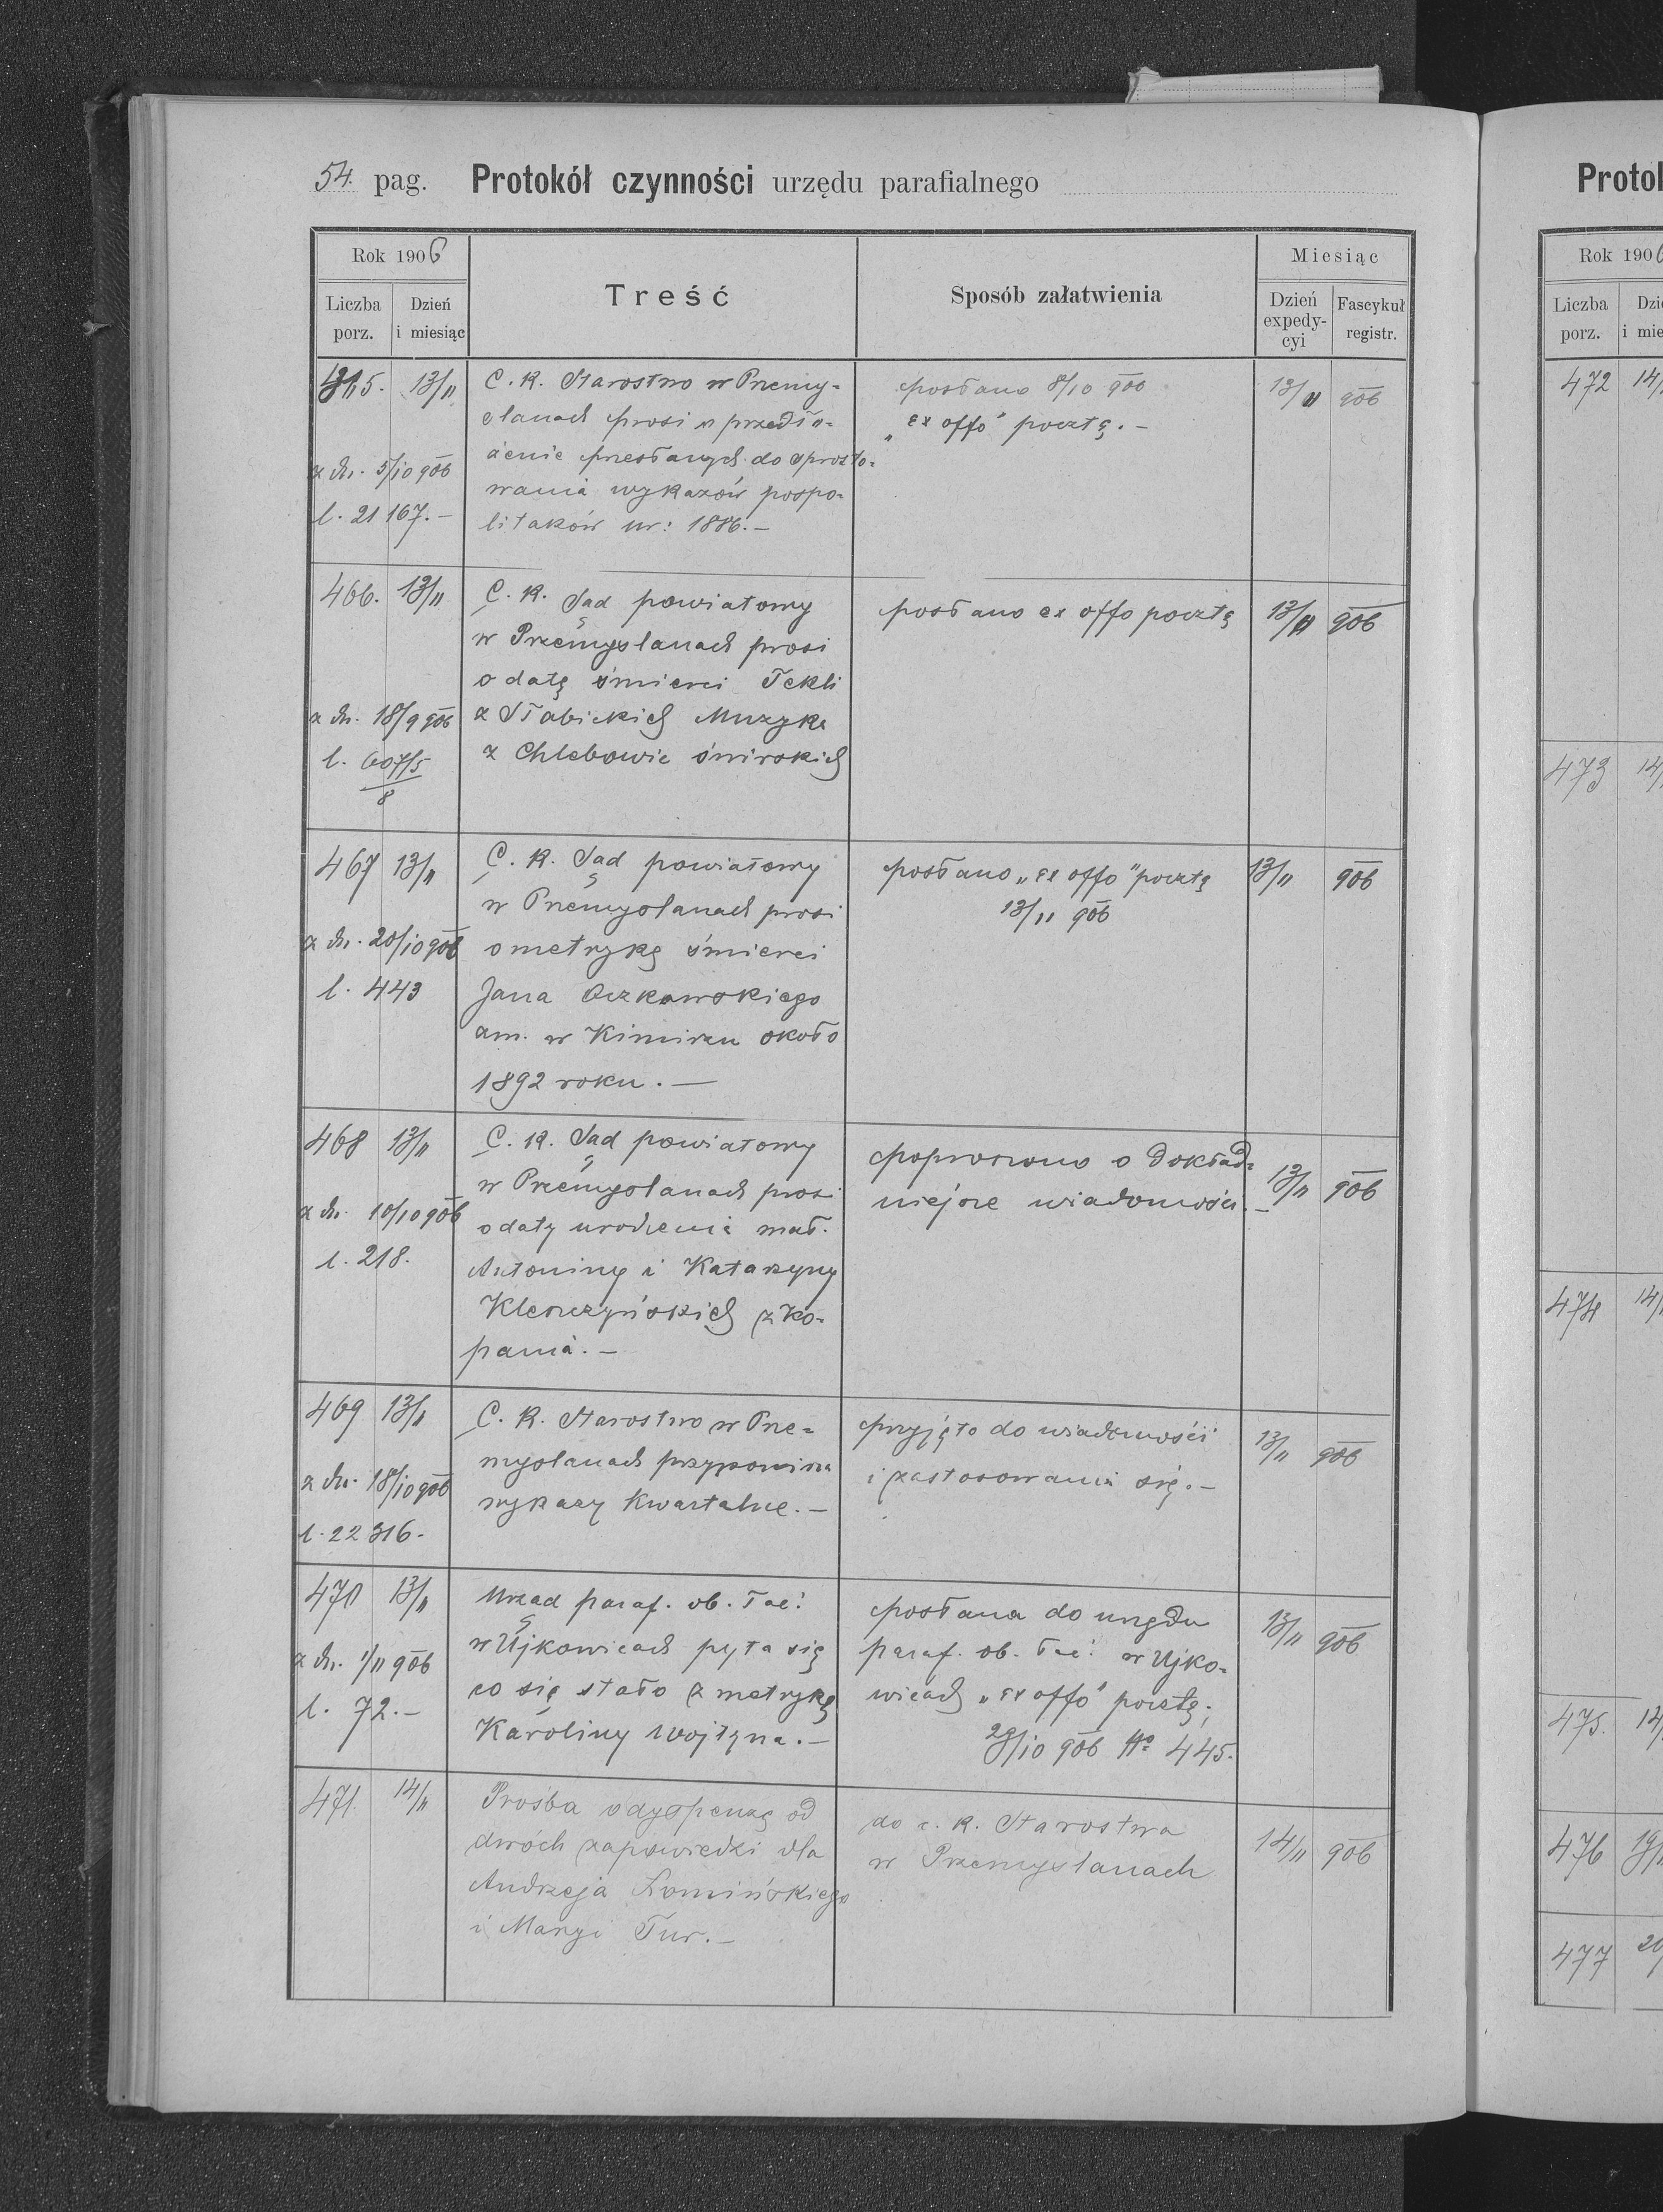 54. pag. Protokół czynności urzędu parafialnego
Rok 1906
Liczba porz.
Dzień i miesiąc
Treść
Sposób załatwienia
Miesiąc
Dzień expedycyi
Fascykuł registr.
13/11
C. K. Starostwo w Przemy-
ślanach prosi o przedło-
żenie przesłanych do sprosto-
wania wykazów pospo-
litaków ur: 1886.–
z dn. 5/10 906
l. 21167.–
posłano 8/10 906
„ex offo” pocztą.–
13/11 906
466. 13/11
C. K. Sąd powiatowy
w Przemyslanach prosi
o datę śmierci Tekli
z Słabickich Muzyka
z Chlebowic świrskich
z dn. 18/9 906
l. 607/5
8
posłano ex offo pocztą
13/11 906
467 13/11
C. K. Sąd powiatowy
w Przemyslanach prosi
o metrykę śmierci
Jana Oczkowskiego
zm. w Kimirzu około
1892 roku.–
z dn. 20/10 906
l. 443
posłano „ex offo” pocztą
13/11 906
13/11 906
468 13/11
C. K. Sąd powiatowy
w Przemyslanach prosi
o daty urodzenia mał.
Antoniny i Katarzyny
z Ko-
pania.–
z dn. 10/10 906
l. 218.
poproszono o dokład-
niejsze wiadomości.–
13/11 906
469 13/11
C. K. Starostwo w Prze-
myslanach przypomina
wykazy kwartalne.–
z dn. 18/10 906
l. 22316.
przyjęto do wiadomości
i zastosowania się.–
13/11 906
470 13/11
Urząd paraf. ob. łać.
w Ujkowicach pyta się
co się stało z metryką
Karoliny Wojtyna.–
z dn. 1/11 906
l. 72.–
posłana do urzędu
paraf. ob. łać. w Ujko-
wicach „ex offo” pocztą.
29/10 906 No 445.
13/11 906
471. 14/11
Prośba o dyspenzę od
dwóch zapowiedzi dla
Andrzeja Łomińskiego
i Maryi Tur.–
do c. k. Starostwa
w Przemyslanach
14/11 906
Protok
Rok 190
Liczba porz.
Dzi
i mie
472 14/
473 14/
474 14/
475. 14/
476 19/
477 20/